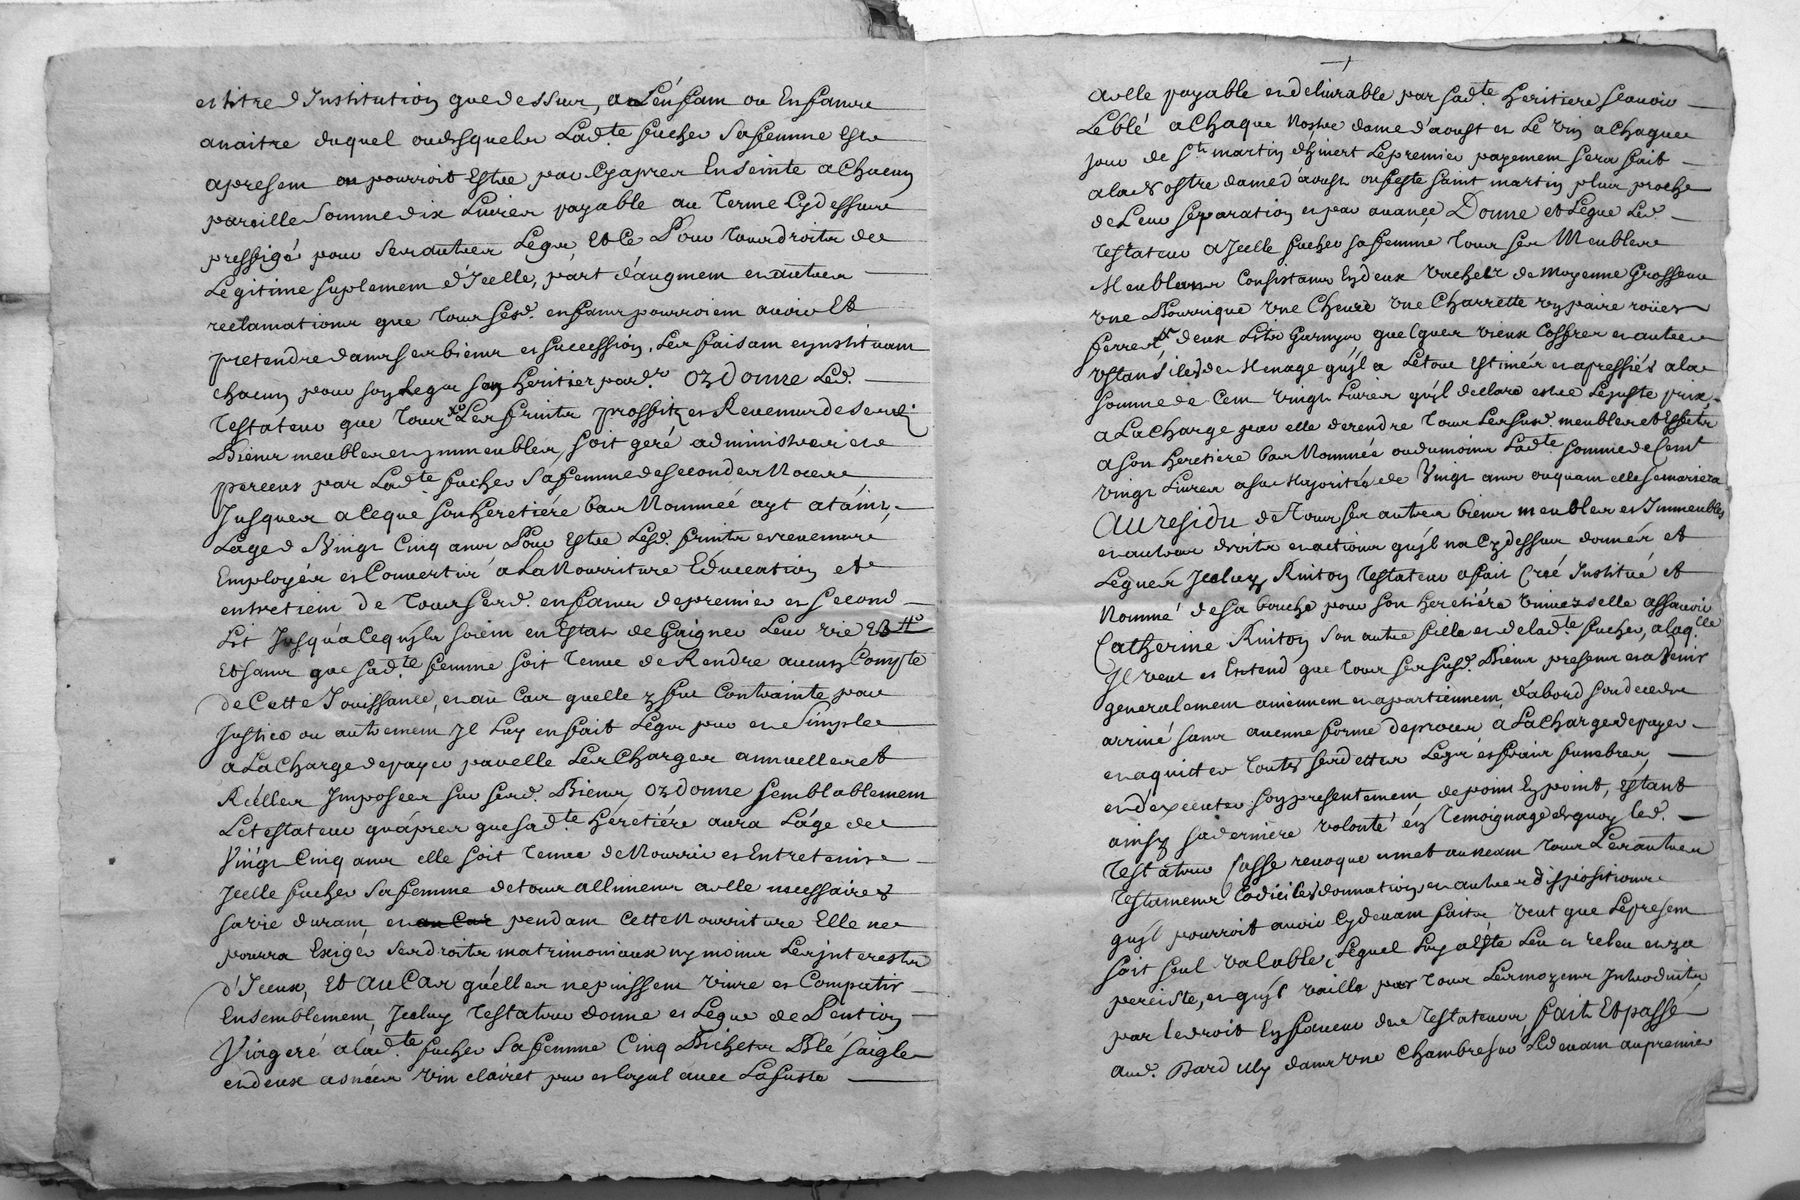 et titre d'Institution que dessus, a Lenfam ou Enfans
anaitre duquel ou desquels Lad.te fucher Sa femme Est
apresem ou pourroit Estre par Cyapres Enseinte a Chacun
pareille Somme dix Livres payable au Terme Cydessus
preffigé pour Ses autres Legs, Et Ce Pour tous droits de
Legitime suplemem d'Icelle, part d'augmem et autres
reclamations que tous Sesd. enfans pourroiem avoir Et
pretendre dans Ses biens et succession, Les faisam eynstituam
chacun pour son Legat son heritier par.er Ordonne Led.
Testateur que tous Les fruits proffits et Revenus de Sesd.
Biens meubles et ymmeubles, soit geré administrer et
perceus par Lad.te fucher Sa femme de seconde Noces
Jusques a Ceque Son heretiére bas Nommée ayt ataint
Lage d Vingt Cinq ans Pour Estre Lesd. fruits et revenus
Employés et Convertir a La Nourriture Education et
entretiem de tous Sesd. enfans de premier et second
Lit Jusqu'a Ceq'yls soiem en Estat de Gaigner Leur vie
Et sans que Sad.te femme soit tenue de Rendre aucun Compte
de Cette Jouissance, et au Cas quelle y fut Contrainte par
Justice ou autremem Jl Luy en fait Legat pur et Simple
a La Charge de payer par elle Les Charges annuelles et
Réélles Imposees sur Sesd. Biens, Ordonne semblablemem
Letestateur qu'apres que Sad.te heretiére aura L'age de
Vingt Cinq ans elle soit tenue de Nourrir et Entretenir
Jcelle fucher Sa femme de tous allimens a elle necessaires
sa vie duram, et au Cas pendam Cette Nourriture Elle ne
pourra Exiger Ses droits matrimoniaux ny moins Les jnterests
d'Jceux, Et Au Cas qu'elles ne puissem vivre et Compatir
Ensemblemem, Jceluy Testateur donne et Légue de Pention
Viageré a lad.te fucher Sa femme Cinq Bichets Blé saigle
et deux asnées Vin clairet pur et loyal avec La fuste
a elle payable et delivrable par Sad.te heritiere scavoir
Leblé a Chaque Nostre dame d'aoust et Le Vin a Chaque
jour de St. martin d'hivert Le premier payemem sera fait
a la Nostre dame d'aoust ou feste saint martin plus proche
de Leur Separation et par avance, Donne et Légue Led.
Testateur a Jcelle fucher sa femme tous Ses Meubles
Meublans Consistans En deux Vaches de moyenne Grosseur
une Bourrique Une Chevre Une Charrette un paire roües
ferrées deux Lits Garnys quelques vieux Coffres et autres
Ustansiles de Menage qu'jl a Letous Estimés et apressiés a la
Somme de Cem vingt Livres qu'jl declare estre Lejuste prix
a La Charge par elle de rendre tous Les susd. meubles et Effets
a Son heretiere bas Nommée ou du moins Lad.te Somme de Cent
Vingt Livres a sa Majorité de Vingt ans ou quam elle Semariera
Au residu de tous Ses autres biens meubles et Immeubles
et autres droits et actions qu'jl na Cydessus donnés et
Legués Jceluy Riviton Testateur a fait Créé Institué et
Nommé de Sa bouche pour Son heretiére Universelle assavoir
Catherine Riviton Son autre fille et de lad.te fucher, a laq.lle
Jl veut et Entend que tous Ses susd. Biens presens et avenir
generalemem aviennem et apartiennem, d'abord Son deces
arrivé sans aucune forme de proces, a La Charge de payer
et aquitter Toutes Ses dettes Legs et frais funebres
et d'executer Son presentemem de poim En point, Estant
ainsy sa derniere volonté, en Temoignage de quoy led.
Testateur Casse revoque et met au neam tous Les autres
Testamens Codiciles donnations et autres dispositions
qu'jl pourroit avoir Cydevam faits veut que Lepresem
soit seul valable, Lequel Luy a esté Leu et releu et y a
perciste, et qu'jl vaille par Tous Les moyens Introduits
par le droit En faveur des Testateurs, fait Et passé
aud. Dardilly dans une Chambre sur Ledevam au premier